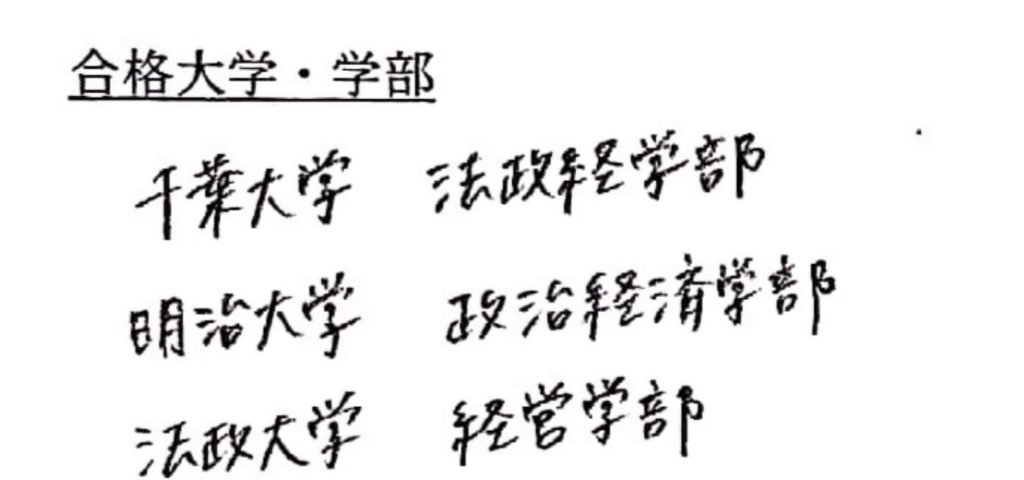 合格大学・学部
千葉大学 法政経学部
明治大学 政治経済学部
法政大学 経営学部